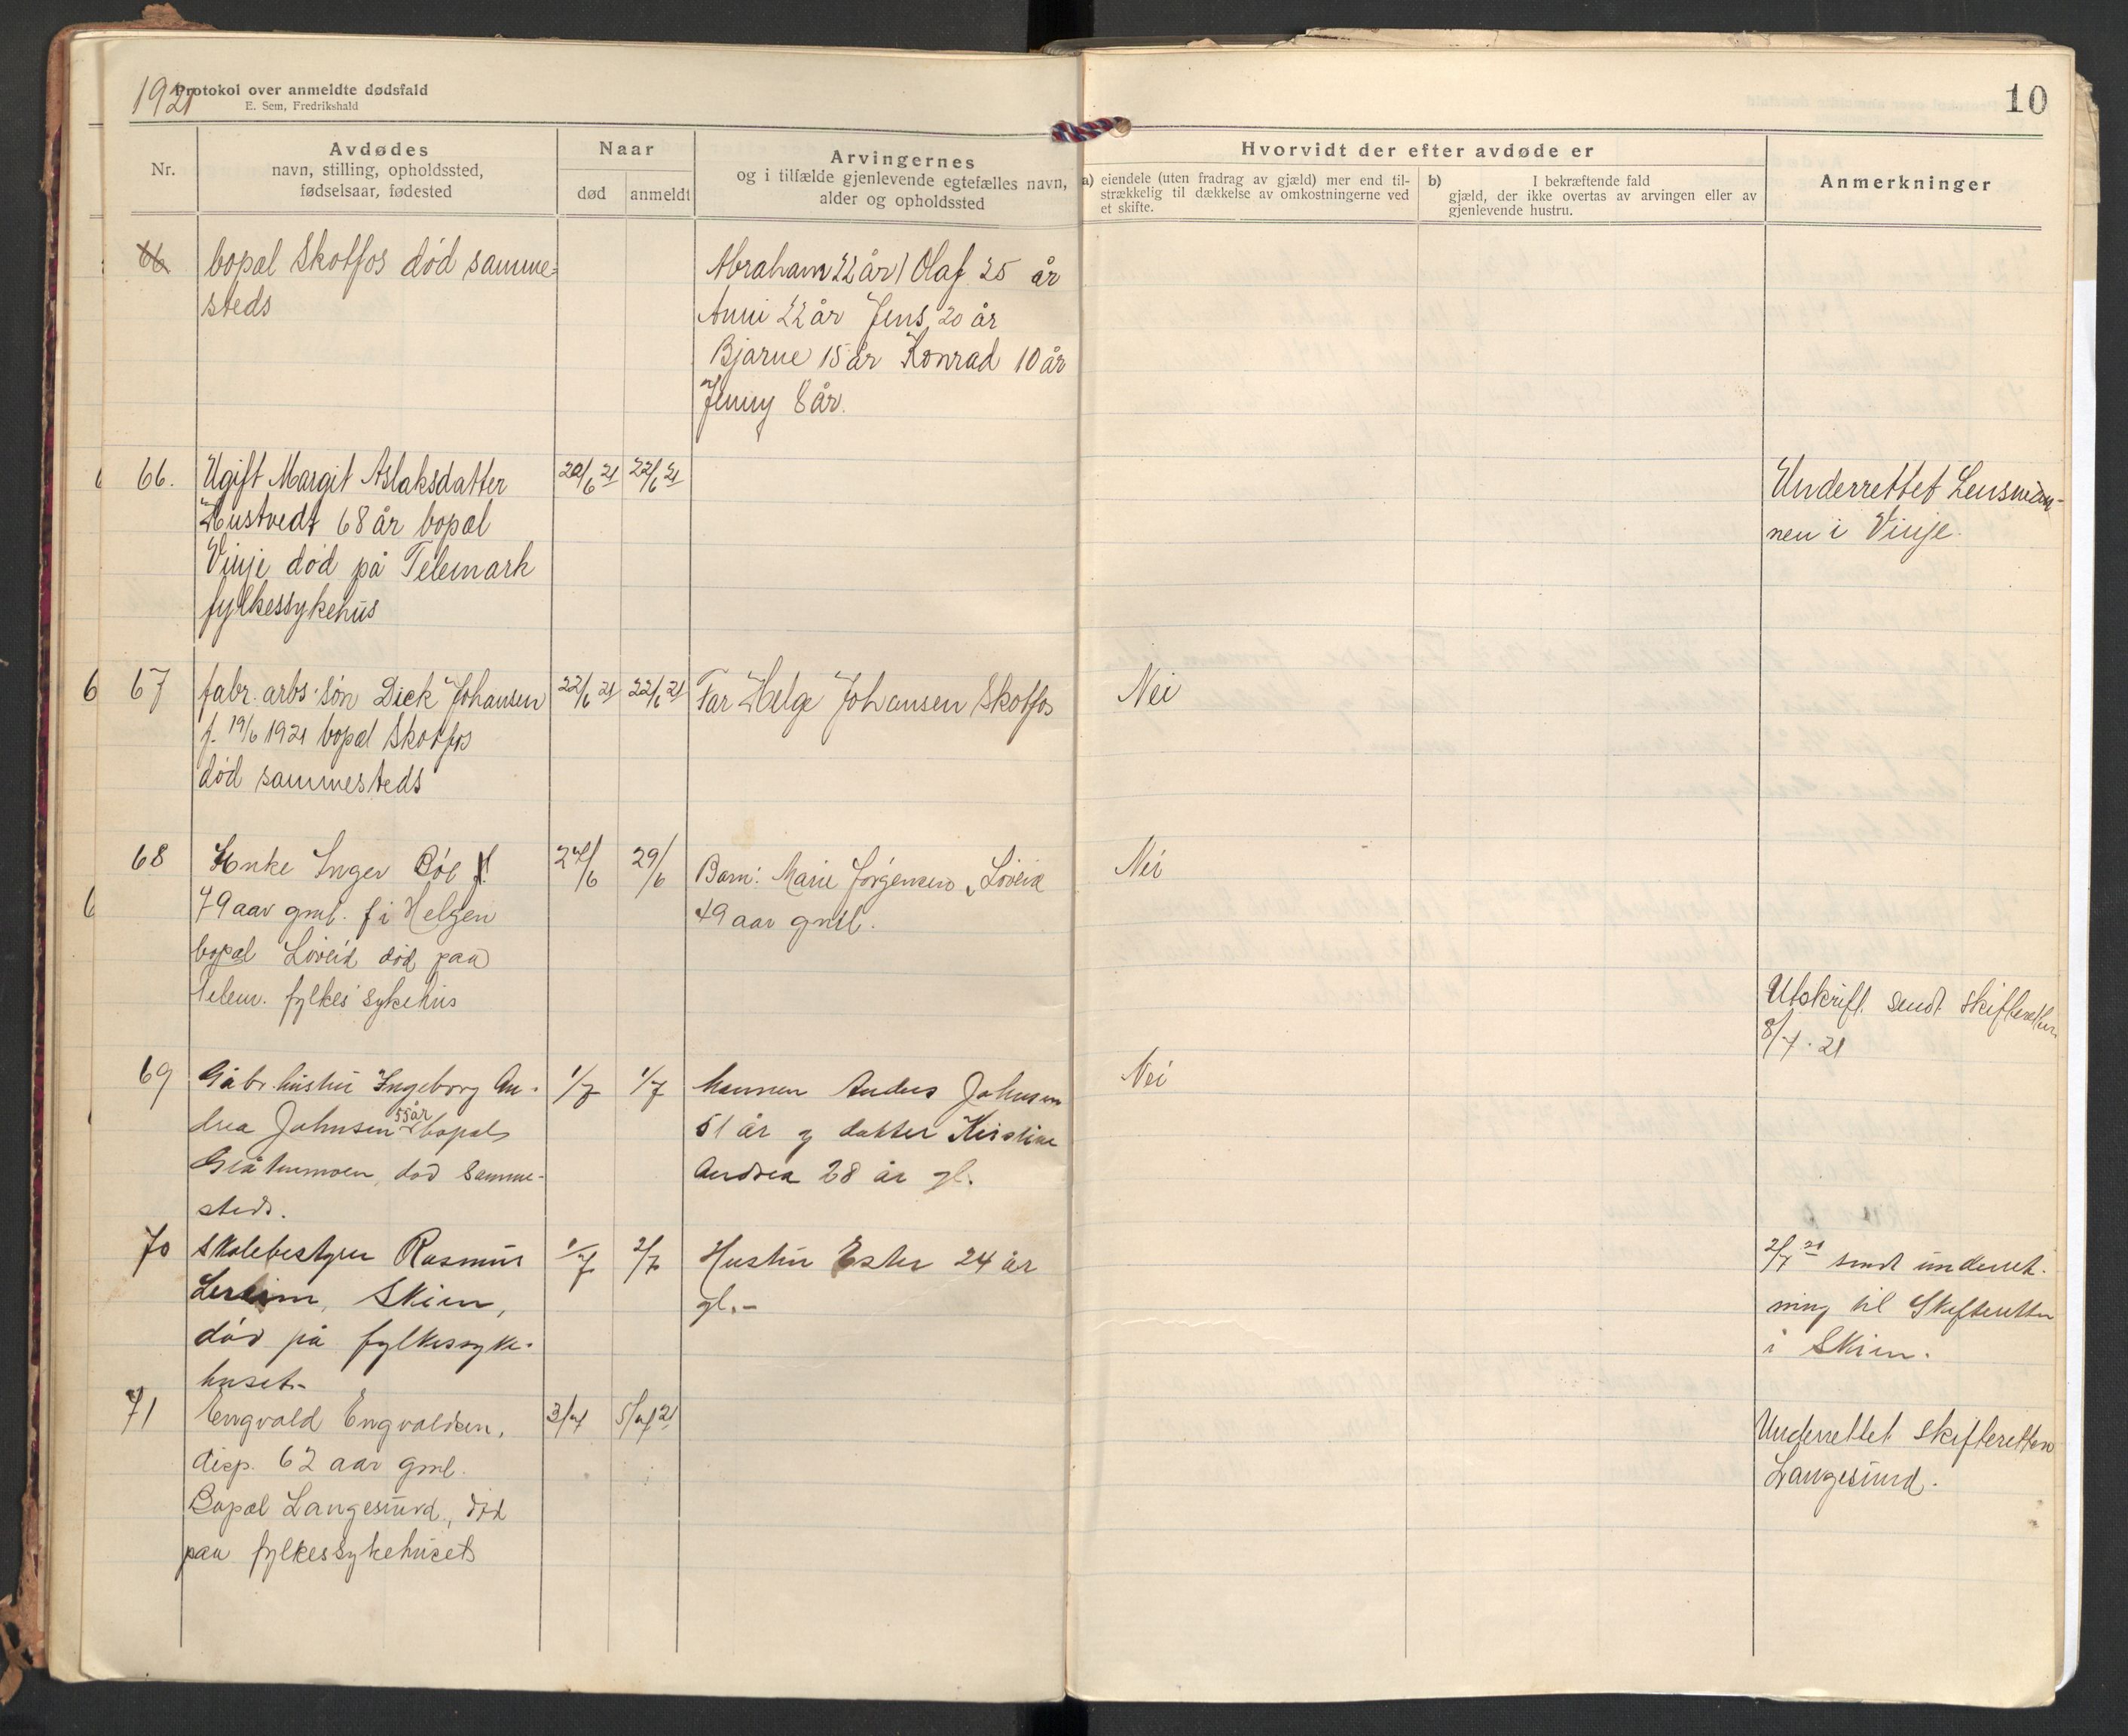 1921
Protokol over anmeldte dødsfald
E. Sem, Fredrikshald
10
Nr.
Avdødes
navn, stilling, opholdssted,
fødselsaar, fødested
Naar
død
anmeldt
Arvingernes
og i tilfælde gjenlevende egtefælles navn,
alder og opholdssted
Hvorvidt der efter avdøde er
a) eiendele (uten fradrag av gjæld) mer end til-
strækkelig til dækkelse av omkostningerne ved
et skifte.
b) I bekræftende fald
gjæld, der ikke overtas av arvingen eller av
gjenlevende hustru.
Anmerkninger
66
bopæl Skotfos død samme-
steds
Abraham 22 år Olaf 25 år
Anni 22 år Jens 20 år
Bjarne 15 år Konrad 10 år
Jenny 8 år.
66.
Ugift Margit Aslaksdatter
Hustvedt 68 år bopæl
Vinje død på Telemark
fylkessykehus
20/6 21
22/6 21
Underrettet Lensman-
nen i Vinje.
67
fabr. arbs. søn Dick Johansen
f. 19/6 1921 bopæl Skotfos
død sammesteds
22/6 21
22/6 21
Far Helge Johansen Skotfos
Nei
68
Enke Inger Bøe
79 aar gml. f i Helgen
bopæl Løveid død paa
Telem. fylkes sykehus
29/6
Barn: Marie Jørgensen, Løveid
49 aar gml.
Nei
Utskrift sendt skifteretten
8/7. 21
69
Gåbr. hustru Ingeborg An-
drea Johnsen 55 år bopæl
død samme-
steds.
1/7
1/7
Mannen Anders Johnsen
51 år og datter Kristine
Andrea 28 år gl.
Nei
70
Skolebestyrer Rasmus
Skien,
død på fylkessyke-
huset.-
1/7
2/7
Hustru Ester 24 år
gl.-
2/7 21 sendt underret-
ning til Skifteretten
i Skien.
71
Engvald Engvaldsen,
disp. 62 aar gml.
Bopæl Langesund, død
paa fylkessykehuset
3/7
5/7 21
Underrettet skifteretten
Langesund.